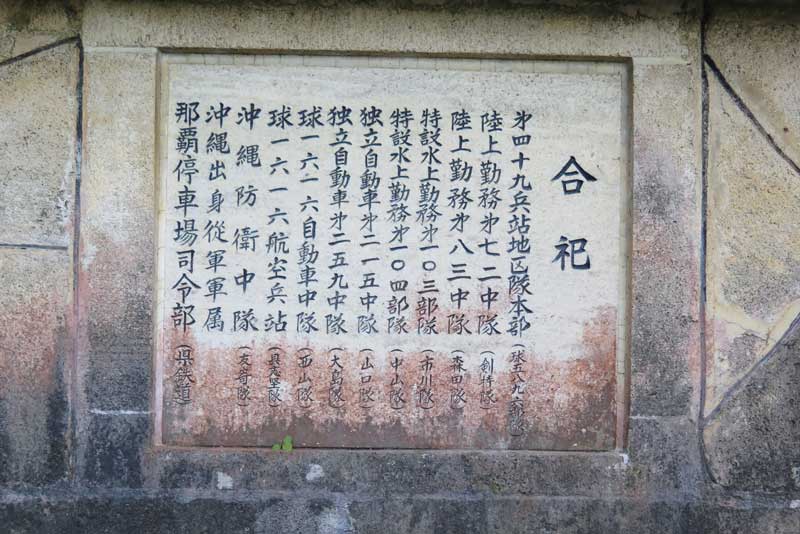 合祀
㐧四十九兵站地区隊本部(球五八九二部隊)
陸上勤務㐧七二中隊(剣持隊)
陸上勤務㐧八三中隊(森田隊)
特設水上勤務㐧一〇三部隊(市川隊)
特設水上勤務㐧一〇四部隊(中山隊)
独立自動車㐧二一五中隊(山口隊)
独立自動車㐧二五九中隊(大島隊)
球一六一六自動車中隊(西山隊)
球一六一六航空兵站
沖縄防衛中隊(友寄隊)
沖縄出身從軍軍属
那覇停車場司令部(県鉄道)